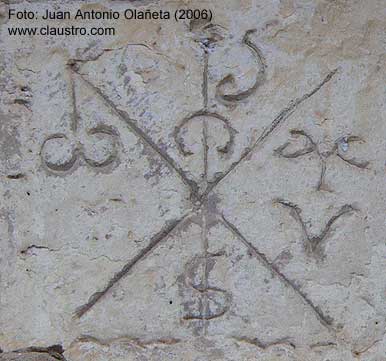 Foto: Juan Antonio Olañeta (2006)
www.claustro.com
ω
V
S